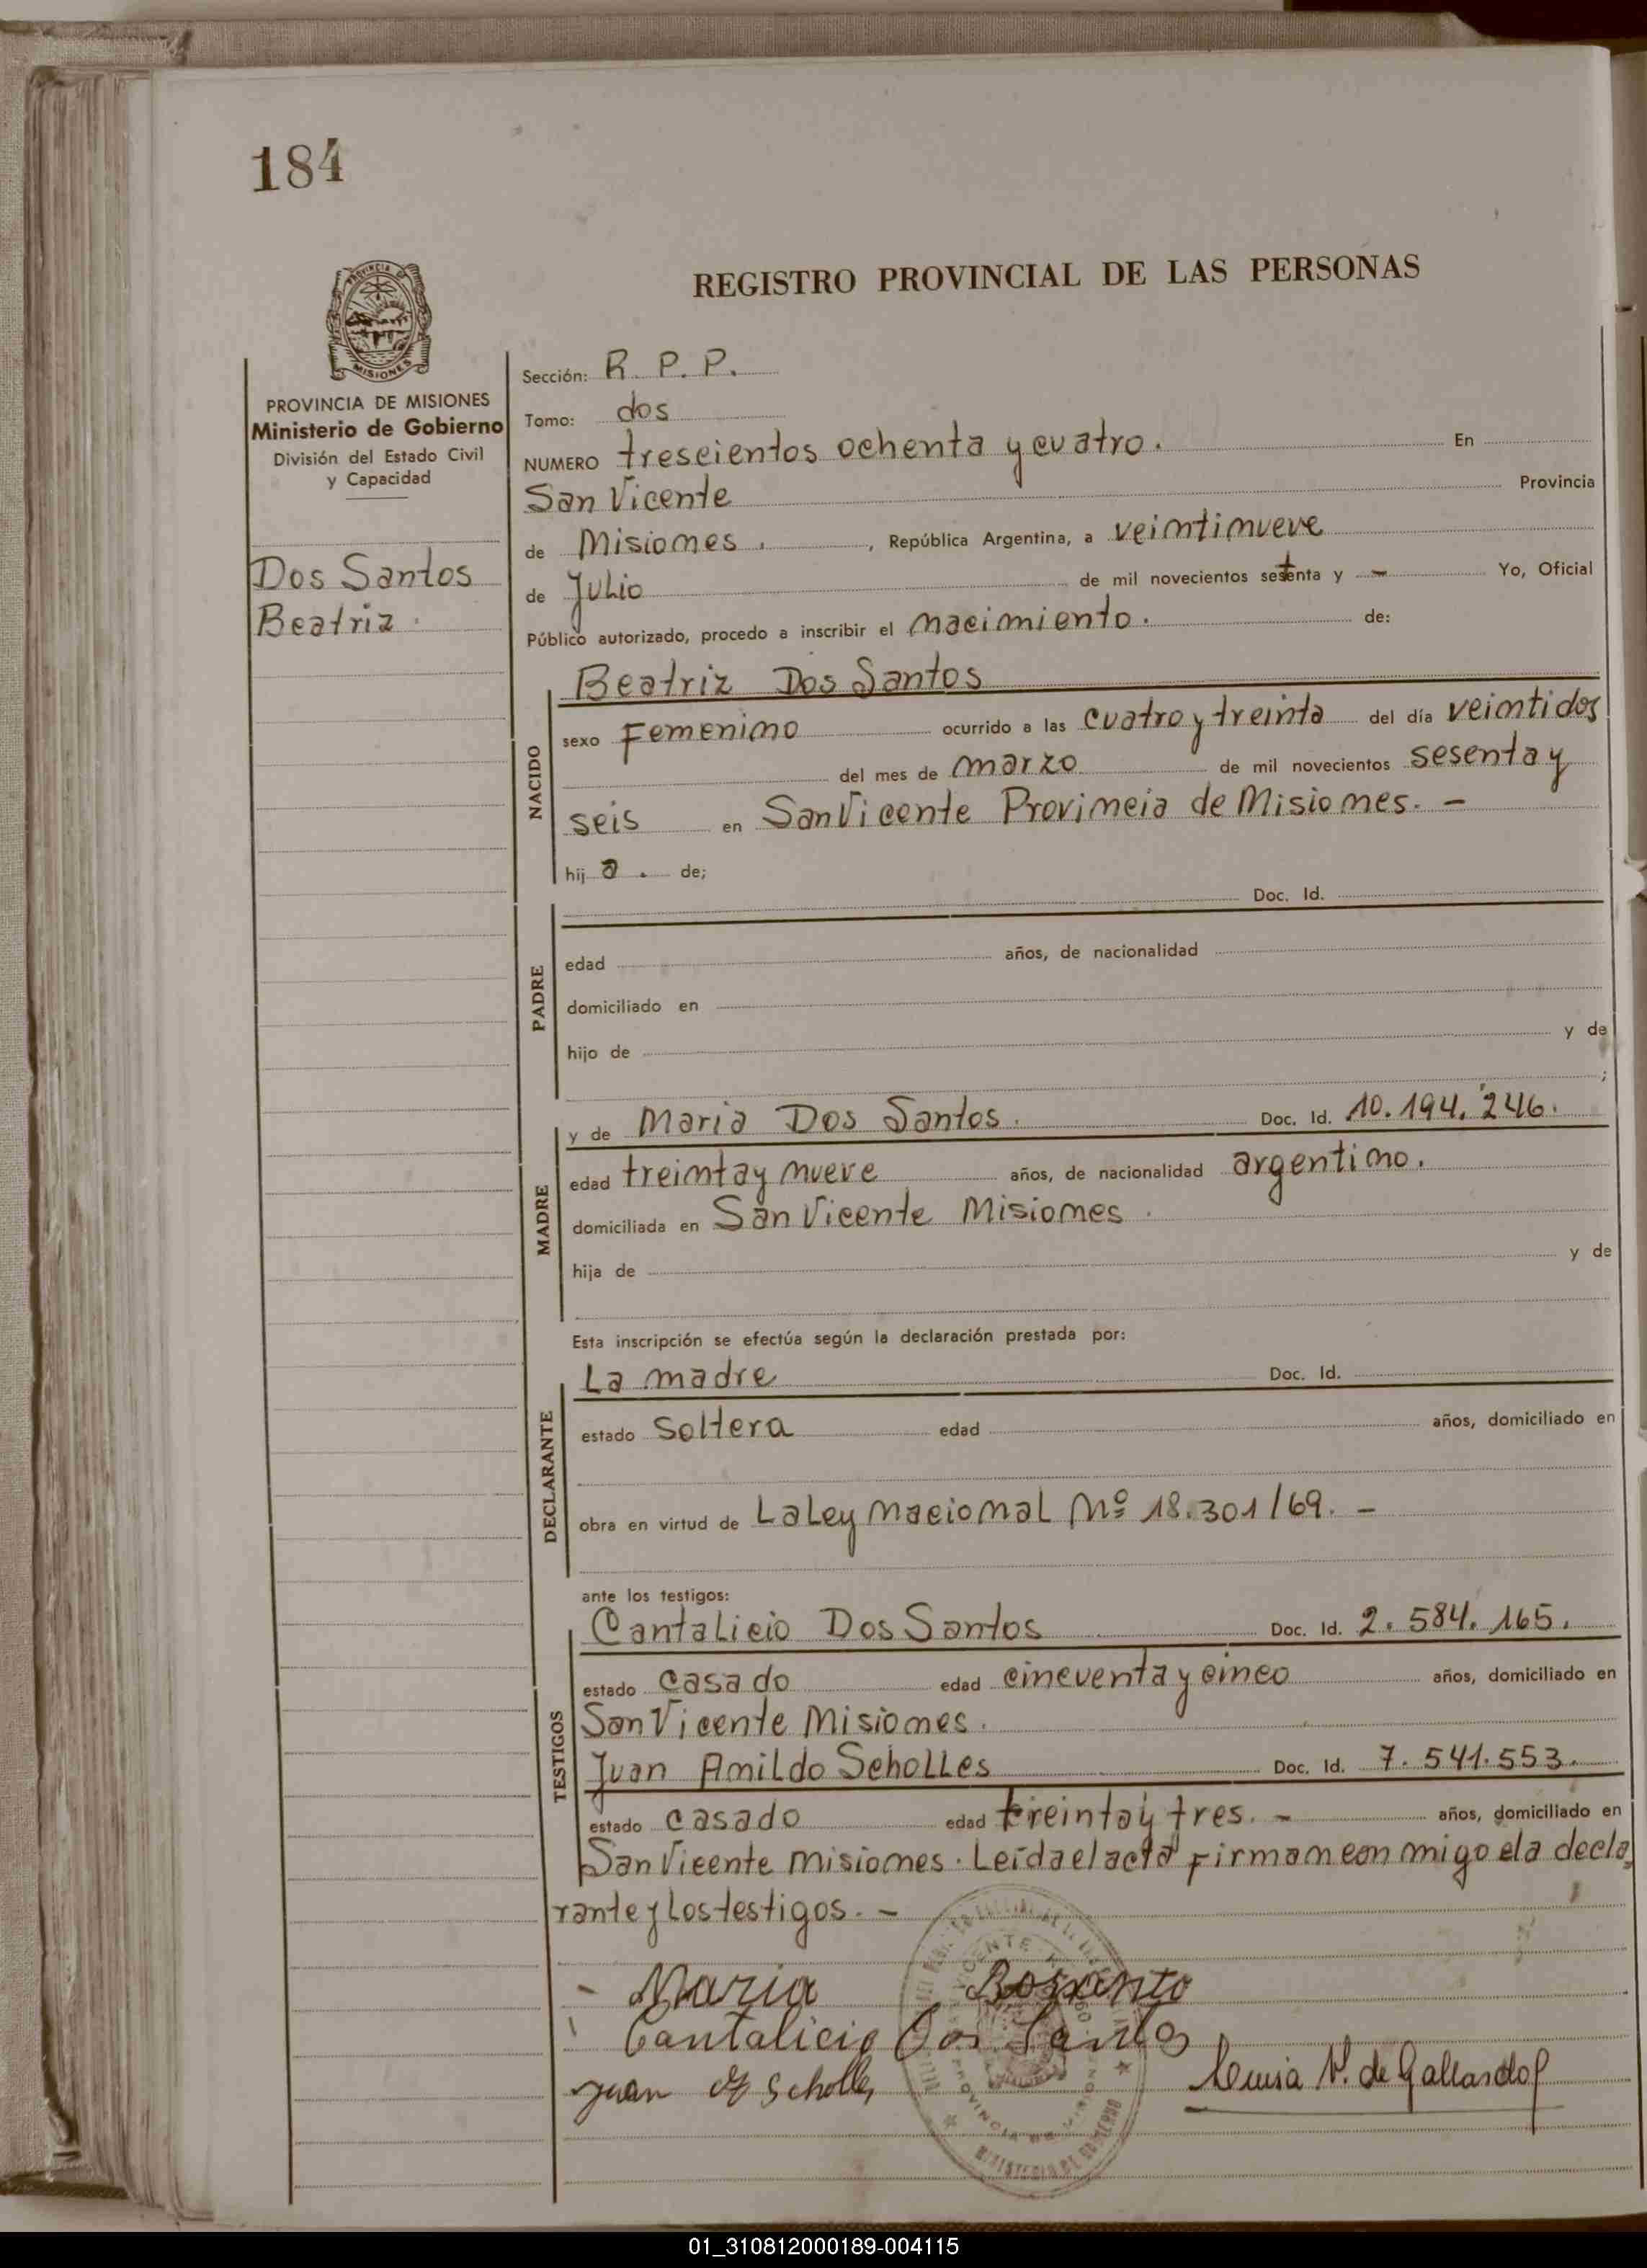 184
REGISTRO PROVINCIAL DE LAS PERSONAS
MISIONES
PROVINCIA DE MISIONES
Ministerio de Gobierno
División del Estado Civil
y Capacidad
Dos Santos
Beatriz
Sección: R. P. P.
Tomo: dos
NUMERO trescientos ochenta y cuatro. En
San Vicente Provincia
de Misiones. , República Argentina, a veintinueve
de Julio de mil novecientos setenta y - Yo, Oficial
Público autorizado, procedo a inscribir el nacimiento. de:
NACIDO
Beatriz Dos Santos
sexo Femenino ocurrido a las cuatro y treinta del día veintidos
del mes de marzo de mil novecientos sesenta y
seis en San Vicente Provincia de Misiones. -
hij a. de;
PADRE
Doc. Id.
edad años, de nacionalidad
domiciliado en
hijo de y de
;
MADRE
y de Maria Dos Santos. Doc. Id. 10.194.246.
edad treinta y nueve años, de nacionalidad argentino.
domiciliada en San Vicente Misiones.
hija de y de
Esta inscripción se efectúa según la declaración prestada por:
DECLARANTE
La madre Doc. Id.
estado soltera edad años, domiciliado en
obra en virtud de La Ley Nacional Nº 18.301/69. -
ante los testigos:
TESTIGOS
Cantalicio Dos Santos Doc. Id. 2.584.165.
estado casado edad cincuenta y cinco años, domiciliado en
San Vicente Misiones.
Juan Amildo Scholles Doc. Id. 7.541.553.
estado casado edad treinta y tres. - años, domiciliado en
San Vicente Misiones. Leída el acta firman con migo ela decla
rante y los testigos. -
- Maria
Cantalicio Dos Santos
Juan Scholles
Luisa V. de Gallardo
01_310812000189-004115